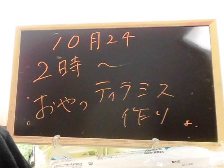 10月24
2時～
おやつ ティラミス
作り